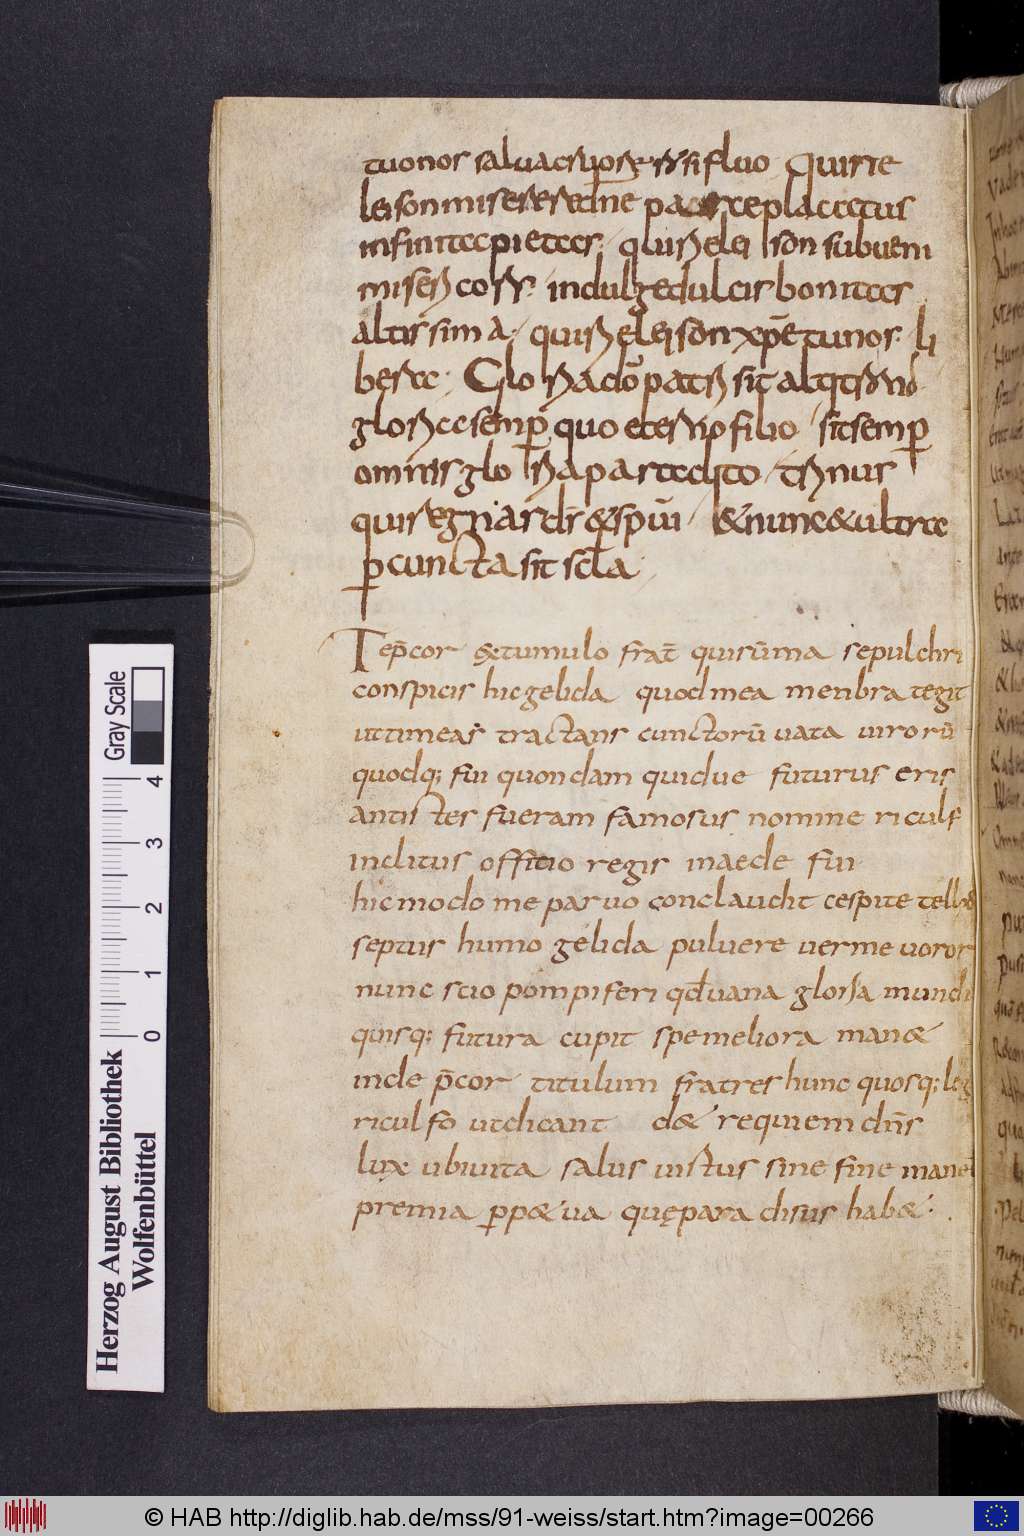 tuonos saluacruore rosifluo Quirie
leison miserere dne pa ce placatus
infinitae pietatis quirielei son subueni
misericors indulge dulcis bonitas
altissima quirie eleison xp̄e tu nos li
bera Glo ria dō patri sit atq;
gloria semper quo eterno filio sit semp
omnis glo ria
qui regnas dr̄ & sp̄ui & nunc & ultra
p cuncta sit scl̄a
Te p̄cor & tumulo frat̄ quisūma sepulchri
conspicis hic gelida quod mea menbra tegit
ut timeas tractans cunctorū uata uirorū
quodq; fui quondam quidue futurus eris
antistes fueram famosus nomine riculf
inclitus offitio regis in aede fui
hic modo me paruo conclaudit cespite tellus
septus humo gelida puluere uerme uoror
nunc scio pompiferi qđ uana gloria mundi
quisq; futura cupit spe meliora man&
inde p̄cor titulum fratres hunc quosq; leg
riculfo ut dicant d& requiem dn̄s
lux ubi uita salus uictus sine fine manet
premia pp&ua quę paradisus hab&
Herzog August Bibliothek
Wolfenbüttel
Gray Scale
0 1 2 3 4
© HAB http://diglib.hab.de/mss/91-weiss/start.htm?image=00266